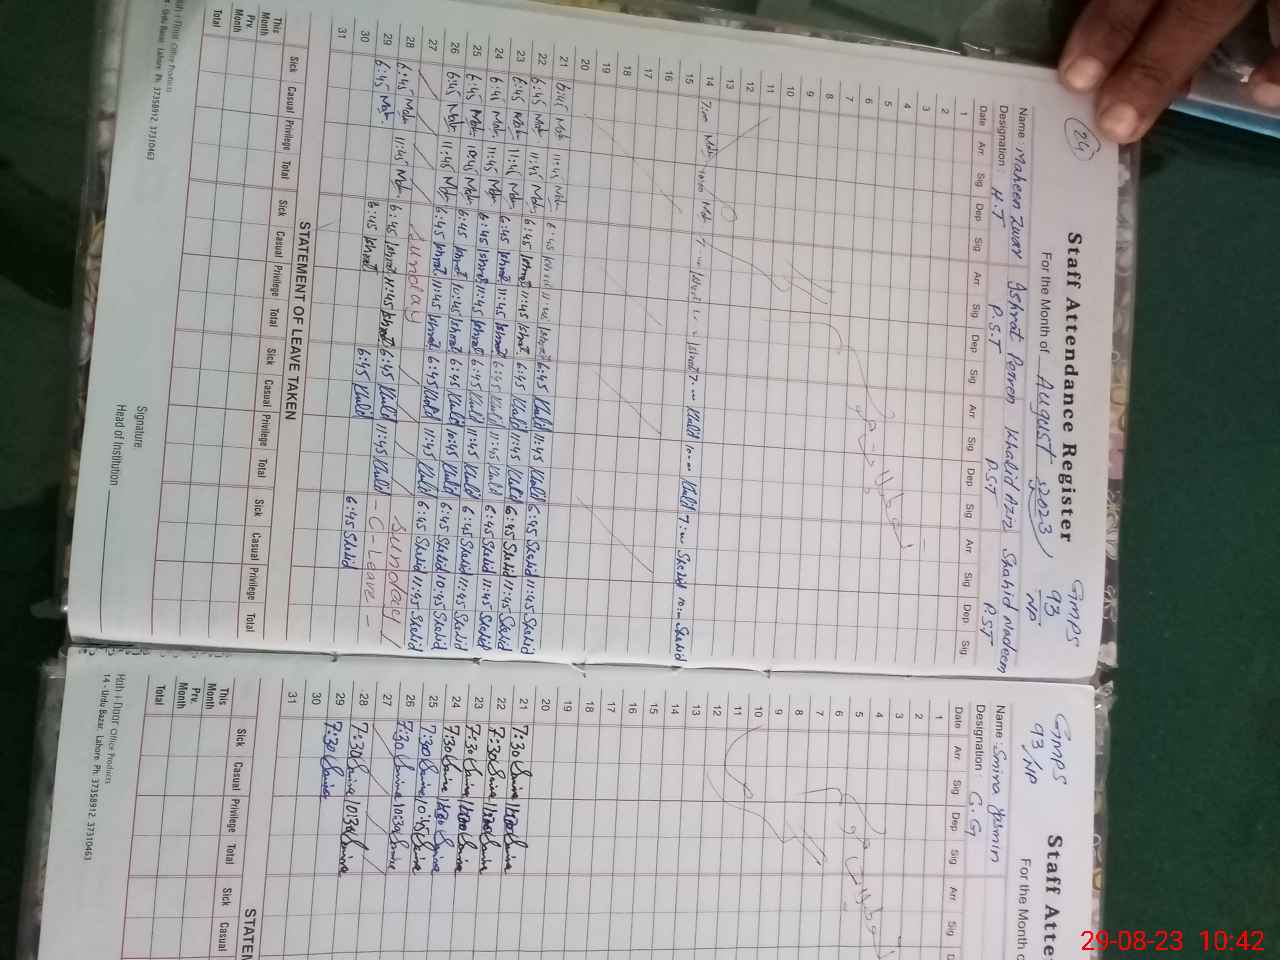 24
Staff Attendance Register
GMPS
93
NP
For the Month of August 2023
Name: Maheen Zwar Ishrat Perven Khalid Aziz Shahid Nadeem
Designation: H.T P.S.T P.ST P.ST
Date Arr. Sig Dep. Sig Arr. Sig Dep. Sig Arr. Sig Dep. Sig Arr. Sig Dep. Sig
1
2
3
4
5
6
7
8
9
10
11
12
13
14 7:00 Mah 10:00 Mah 7:— Ishrat Ishrat 7:— Khalid 10:— Khalid 7:— Shahid 10:— Shahid
15
16
17
18
19
20
21 6:45 Mah 11:45 Mah 6:45 Ishrat 11:45 Ishrat 6:45 Khalid 11:45 Khalid 6:45 Shahid 11:45 Shahid
22 6:45 Mah 11:45 Mah 6:45 Ishrat 11:45 Ishrat 6:45 Khalid 11:45 Khalid 6:45 Shahid 11:45 Shahid
23 6:45 Mah 11:45 Mah 6:45 Ishrat 11:45 Ishrat 6:45 Khalid 11:45 Khalid 6:45 Shahid 11:45 Shahid
24 6:45 Mah 11:45 Mah 6:45 Ishrat 11:45 Ishrat 6:45 Khalid 11:45 Khalid 6:45 Shahid 11:45 Shahid
25 6:45 Mah 10:45 Mah 6:45 Ishrat 10:45 Ishrat 6:45 Khalid 10:45 Khalid 6:45 Shahid 10:45 Shahid
26 6:45 Mah 11:45 Mah 6:45 Ishrat 11:45 Ishrat 6:45 Khalid 11:45 Khalid 6:45 Shahid 11:45 Shahid
27 Sunday Sunday
28 6:45 Mah 11:45 Mah 6:45 Ishrat 11:45 Ishrat 6:45 Khalid 11:45 Khalid - C-Leave -
29 6:45 Mah 6:45 Ishrat 6:45 Khalid 6:45 Shahid
30
31
STATEMENT OF LEAVE TAKEN
Sick Casual Privilege Total Sick Casual Privilege Total Sick Casual Privilege Total Sick Casual Privilege Total
This Month
Prv. Month
Total
Signature
Head of Institution
Koh-i-Noor Office Products
14 - Urdu Bazar, Lahore. Ph: 37358912, 37310463
GMPS
93/NP
Staff Atte
For the Month o
Name: Smira Yasmin
Designation: C.G
Date Arr. Sig Dep. Sig Arr. Sig
1
2
3
4
5
6
7
8
9
10
11
12
13
14
15
16
17
18
19
20
21 7:30
22 7:30
23 7:30
24 7:30
25 7:30 10:45
26 7:30 10:30
27
28 7:30 10:30
29 7:30
30
31
STATEM
Sick Casual Privilege Total Sick Casual
This Month
Prv. Month
Total
Koh-i-Noor Office Products
14 - Urdu Bazar, Lahore. Ph: 37358912, 37310463
29-08-23 10:42